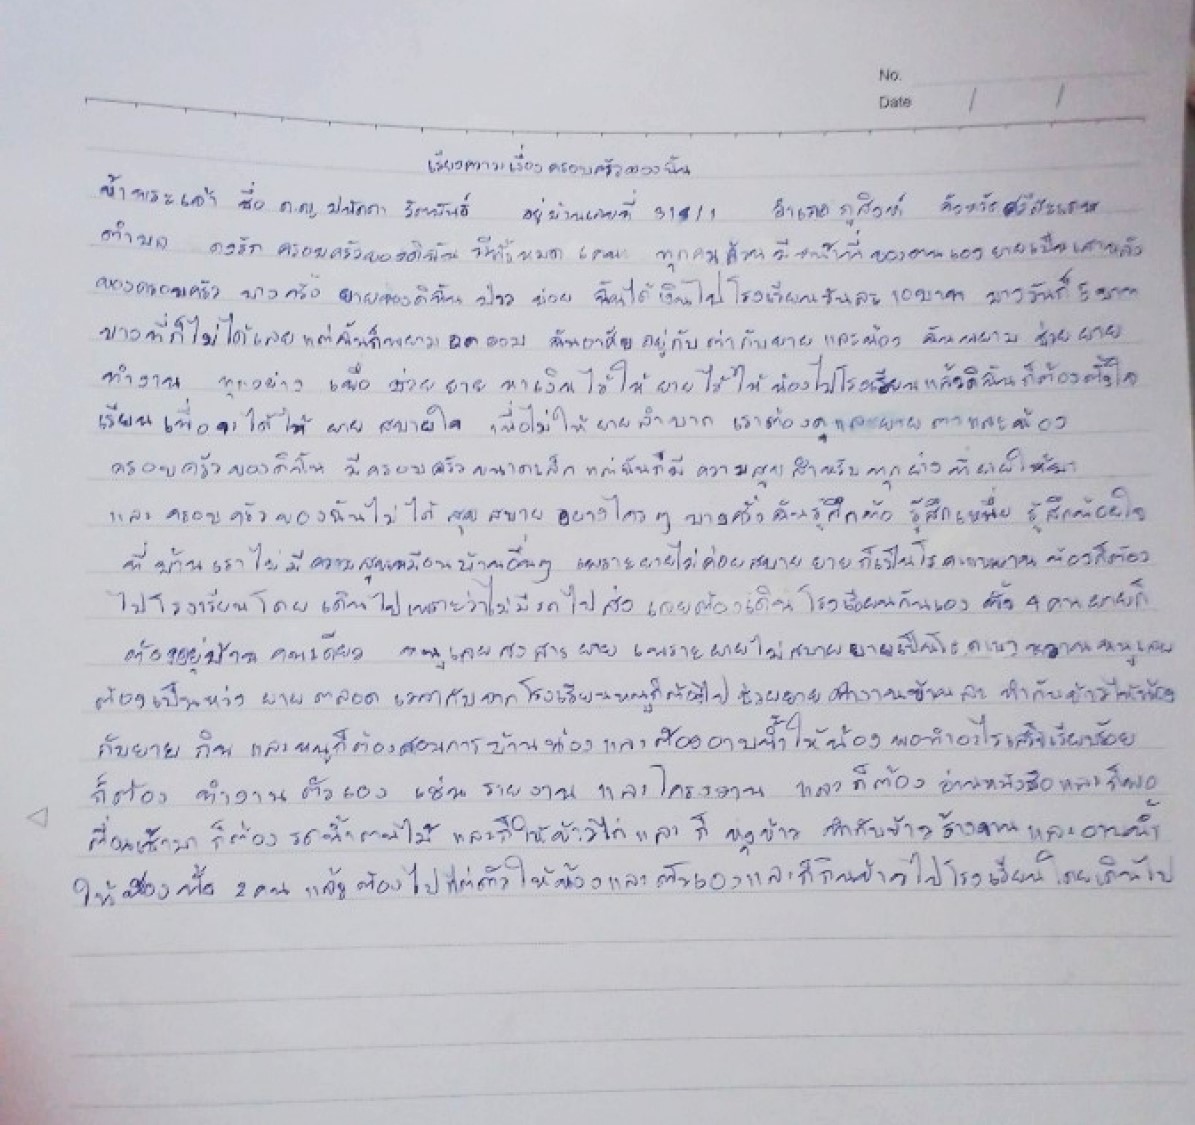 No.
Date / /
เรียงความเรื่องครอบครัวของฉัน
ข้าพระเจ้า ชื่อ ด.ญ อยู่บ้านเลขที่ อำเภอ ภูสิงห์ จังหวัดศรีสะเกษ
ตำบล ดงรัก ครอบครัวของดิฉัน มีทั้งหมด ทุกคนล้วนมีหน้าที่ของตนเอง ยายเป็นเสาหลัง
ของครอบครัว บางครั้ง ยายของดิฉัน ป่วย บ่อย ฉันได้เงินไปโรงเรียนวันละ 10บาท บางวันก็ 5 บาท
บางที่ก็ไม่ได้เลย แต่ฉันก็พยาม อดออม ฉันอาศัย อยู่กับตากับยาย และน้อง ฉันพยาม ช่วย ยาย
ทำงาน ทุกอย่าง เพื่อ ช่วย ยาย หาเงิน ไว้ให้ ยาย ไว้ให้ น้องไปโรงเรียน แล้วดิฉันก็ต้องตั้งใจ
เรียน เพื่อจะได้ให้ ยาย สบายใจ เพื่อไม่ให้ยายลำบาก เราต้องดูแลยาย ตาและน้อง
ครอบครัวของดิฉัน มีครอบครัวขนาดเล็ก แต่ฉันก็มี ความสุขสำหรับทุกย่างที่ยายให้มา
และ ครอบครัวของฉันไม่ได้ สุขสบาย อย่างใครๆ บางครั้ง ฉันรู้สึกท้อ รู้สึกเหนื่อย รู้สึกน้อยใจ
ที่บ้านเราไม่มีความสุขเหมือนบ้านอื่นๆ เพราะยายไม่ค่อยสบาย ยายก็เป็นโรคเบาหวาน น้องก็ต้อง
ไปโรงเรียนโดย เดินไปเพราะว่าไม่มีรถไปส่ง เลยต้องเดินโรงเรียนกันเอง ทั้ง 4 คน ยายก็
ต้องอยู่บ้าน คนเดียว หนูเลยสงสารยาย เพราะยายไม่สบาย ยายเป็นโรคเบาหวาน หนูเลย
ต้องเป็นหว่ง ยายตลอด เวลากับจากโรงเรียนหนูก็ต้องไป ช่วยยาย ทำงานบ้านละ ทำกับข้าวให้น้อง
กับยาย กิน และหนูก็ต้องสอนการบ้านน้อง และต้องอาบน้ำให้น้อง พอทำอะไรเสร็จเรียบร้อย
ก็ต้อง ทำงาน ตัวเอง เช่น รายงาน และโครงงาน แลวก็ต้อง อ่านหนังสือและก็พอ
ตื่นเช้ามา ก็ต้อง รดน้ำต้นไม้ และก็ให้ข้าวไก่ และ ก็ หุงข้าว ทำกับข้าว ล้างจาน และอาบน้ำ
ให้น้องทั้ง 2 คน แล้วต้องไปแต่งตัวให้น้องและตัวเองและก็กินข้าวไปโรงเรียนโดยเดินไป